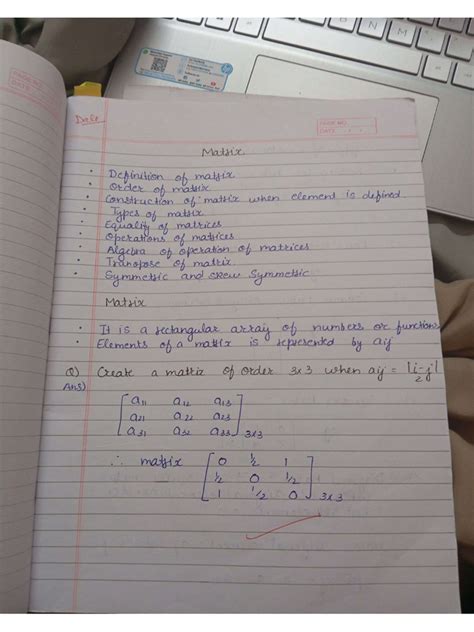 PAGE NO.
DATE
Date
PAGE NO.
DATE
Matrix
• Definition of matrix
• Order of matrix
• Construction of matrix when element is defined
• Types of matrix
• Equality of matrices
• Operations of matrices
• Algebra of operation of matrices
• Transpose of matrix.
• Symmetric and skew Symmetric
Matrix
• It is a rectangular array of numbers or functions
• Elements of a matrix is represented by aij
Q) Create a matrix of order 3x3 when aij = |i-j|/2
Ans)
[a11 a12 a13
a21 a22 a23
a31 a32 a33]3x3
∴ matrix [0 1/2 1
1/2 0 1/2
1 1/2 0]3x3